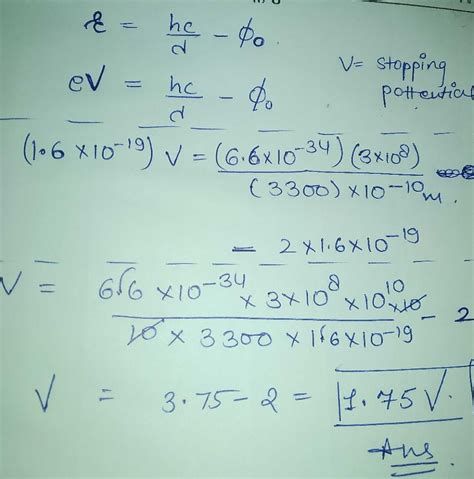 ε = hc/d - ϕ₀
eV = hc/d - ϕ₀
V= stopping
pottential
(1.6 ×10⁻¹⁹) V = (6.6×10⁻³⁴) (3×10⁸) / (3300) ×10⁻¹⁰m.
- 2 ×1.6×10⁻¹⁹
V = 6.6 ×10⁻³⁴ × 3×10⁸ ×10¹⁰ ×10 / 10 × 3300 × 1.6×10⁻¹⁹ - 2
V = 3.75 - 2 = 1.75 V.
Ans